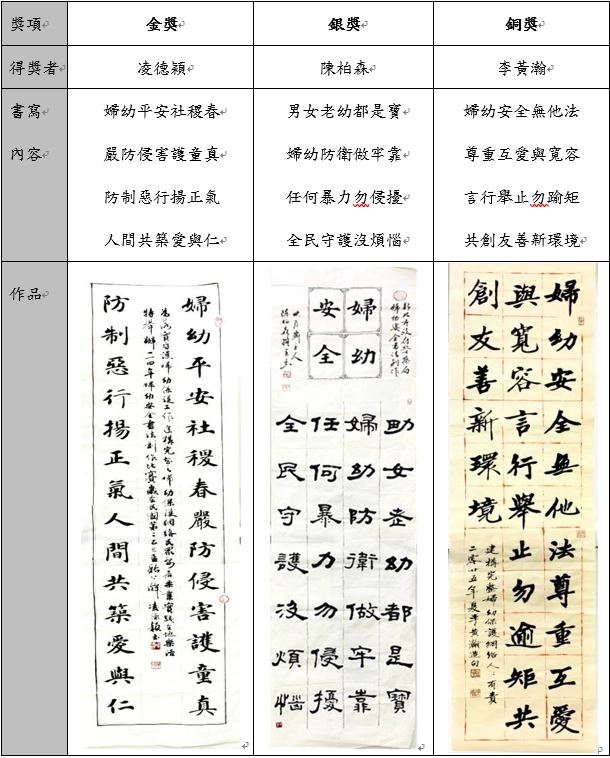 獎項 金獎 銀獎 銅獎
得獎者 凌德穎 陳柏森 李黃瀚
書寫內容
婦幼平安社稷春
嚴防侵害護童真
防制惡行揚正氣
人間共築愛與仁
男女老幼都是寶
婦幼防衛做牢靠
任何暴力勿侵擾
全民守護沒煩惱
婦幼安全無他法
尊重互愛與寬容
言行舉止勿踰矩
共創友善新環境
作品
婦幼平安社稷春嚴防侵害護童真
防制惡行揚正氣人間共築愛與仁
新北市政府警察局
婦幼安全書法創作
婦幼
安全
男女老幼都是寶
婦幼防衛做牢靠
任何暴力勿侵擾
全民守護沒煩惱
婦幼安全無他法尊重互愛
與寬容言行舉止勿逾矩共
創友善新環境
建構完整婦幼保護網絡人人有責
二零廿五年夏李黃瀚造句